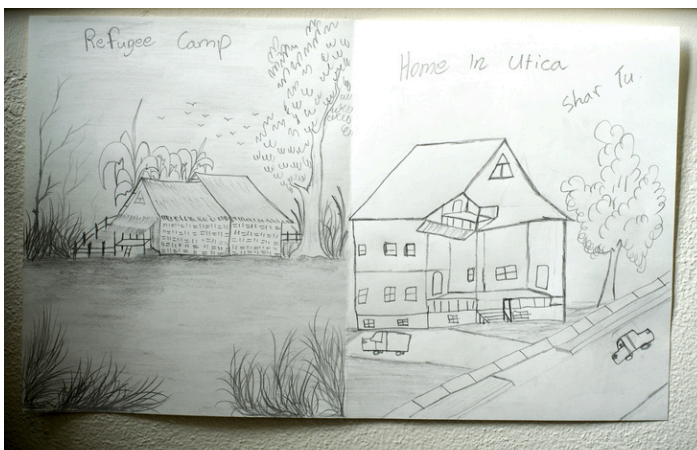 Refugee Camp
Home In Utica
Shar Tu.